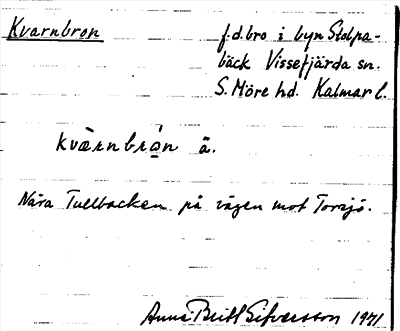 Kvarnbron
f.d. bro i byn Stolpa-
bäck Vissefjärda sn.
S. Möre hd. Kalmar l.
kvà̈rnbrọ̀n ä.
Nära Tullbacken på vägen mot Torsjö.
Anna-Britt Sifversson 1971